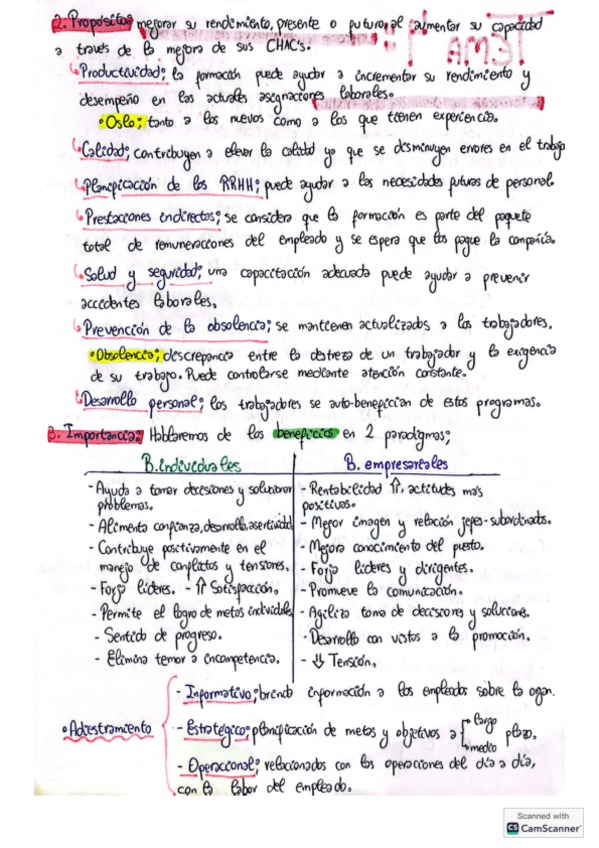 2. Propósitos mejorar su rendimiento, presente o futuro, al aumentar su capacidad
a través de la mejora de sus CHAC's.
Productividad; la formación puede ayudar a incrementar su rendimiento y
desempeño en las actuales asignaciones laborales.
• Oslo; tanto a los nuevos como a los que tienen experiencia.
Calidad; contribuyen a elevar la calidad ya que se disminuyen errores en el trabajo
Planificación de los RRHH; puede ayudar a las necesidades futuras de personal.
Prestaciones indirectas; se considera que la formación es parte del paquete
total de remuneraciones del empleado y se espera que las pague la compañía.
Salud y seguridad; una capacitación adecuada puede ayudar a prevenir
accidentes laborales.
Prevención de la obsolencia; se mantienen actualizados a los trabajadores.
• Obsolencia; discrepancia entre la destreza de un trabajador y la exigencia
de su trabajo. Puede controlarse mediante atención constante.
Desarrollo personal; los trabajadores se auto-benefician de estos programas.
3. Importancia: Hablaremos de los beneficios en 2 paradigmas;
B. individuales
- Ayuda a tomar decisiones y solucionar
problemas.
- Alimenta confianza, desarrollo, asertividad
- Contribuye positivamente en el
manejo de conflictos y tensiones.
- Forja líderes. - ⇑ Satisfacción.
- Permite el logro de metas individuales
- Sentido de progreso.
- Elimina temor a incompetencia.
B. empresariales
- Rentabilidad ⇑, actitudes más
positivas.
- Mejor imagen y relación jefes-subordinados.
- Mejora conocimiento del puesto.
- Forja líderes y dirigentes.
- Promueve la comunicación.
- Agiliza toma de decisiones y soluciones.
- Desarrollo con vistas a la promoción.
- ⇓ Tensión.
• Adiestramiento
- Informativo; brinda información a los empleados sobre la ogan.
- Estratégico; planificación de metas y objetivos a largo medio plazo.
- Operacional; relacionados con las operaciones del día a día,
con la labor del empleado.
Scanned with
CS CamScanner